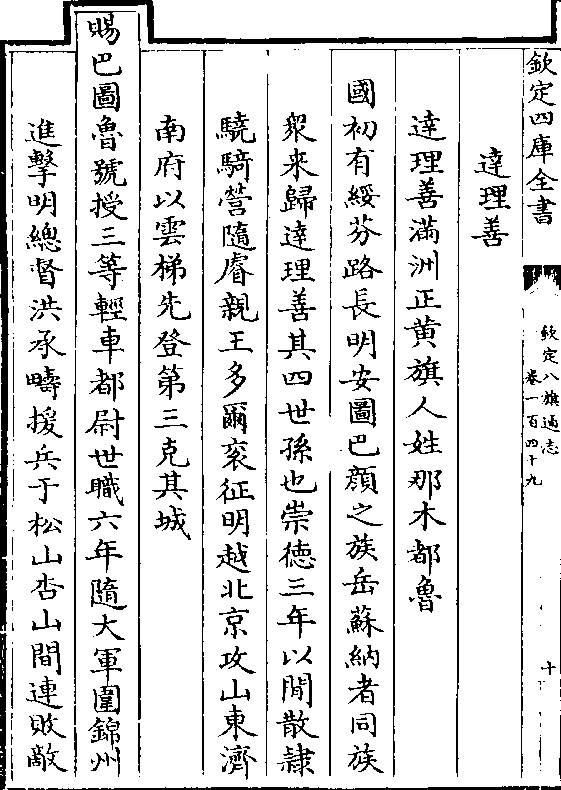 欽定四庫全書
欽定八旗通志
卷一百四十九
十
達理善
達理善滿洲正黃旗人姓那木都魯
國初有綏芬路長明安圖巴顔之族岳蘇納者同族
衆来歸達理善其四世孫也崇徳三年以閒散隷
驍騎營隨睿親王多爾衮征明越北京攻山東濟
南府以雲梯先登第三克其城
賜巴圖魯號授三等輕車都尉世職六年隨大軍圍錦州
進擊明總督洪承疇援兵于松山杏山間連敗敵